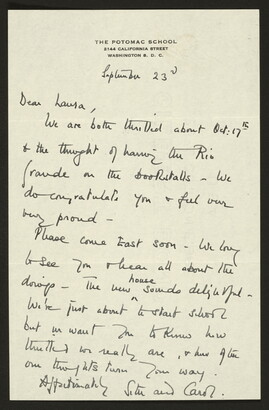 THE POTOMAC SCHOOL
2144 CALIFORNIA STREET
WASHINGTON 8, D. C.
September 23d
Dear Laura,
We are both thrilled about Oct. 17th
& the thought of having the Rio
Grande on the bookstalls – We
do congratulate you & feel very
very proud –
Please come East soon – We long
to see you & hear all about the
doings – The new house sounds delightful –
We're just about to start school
but we want you to know how
thrilled we really are, & how often
our thoughts turn your way.
Affectionately
and Carol.